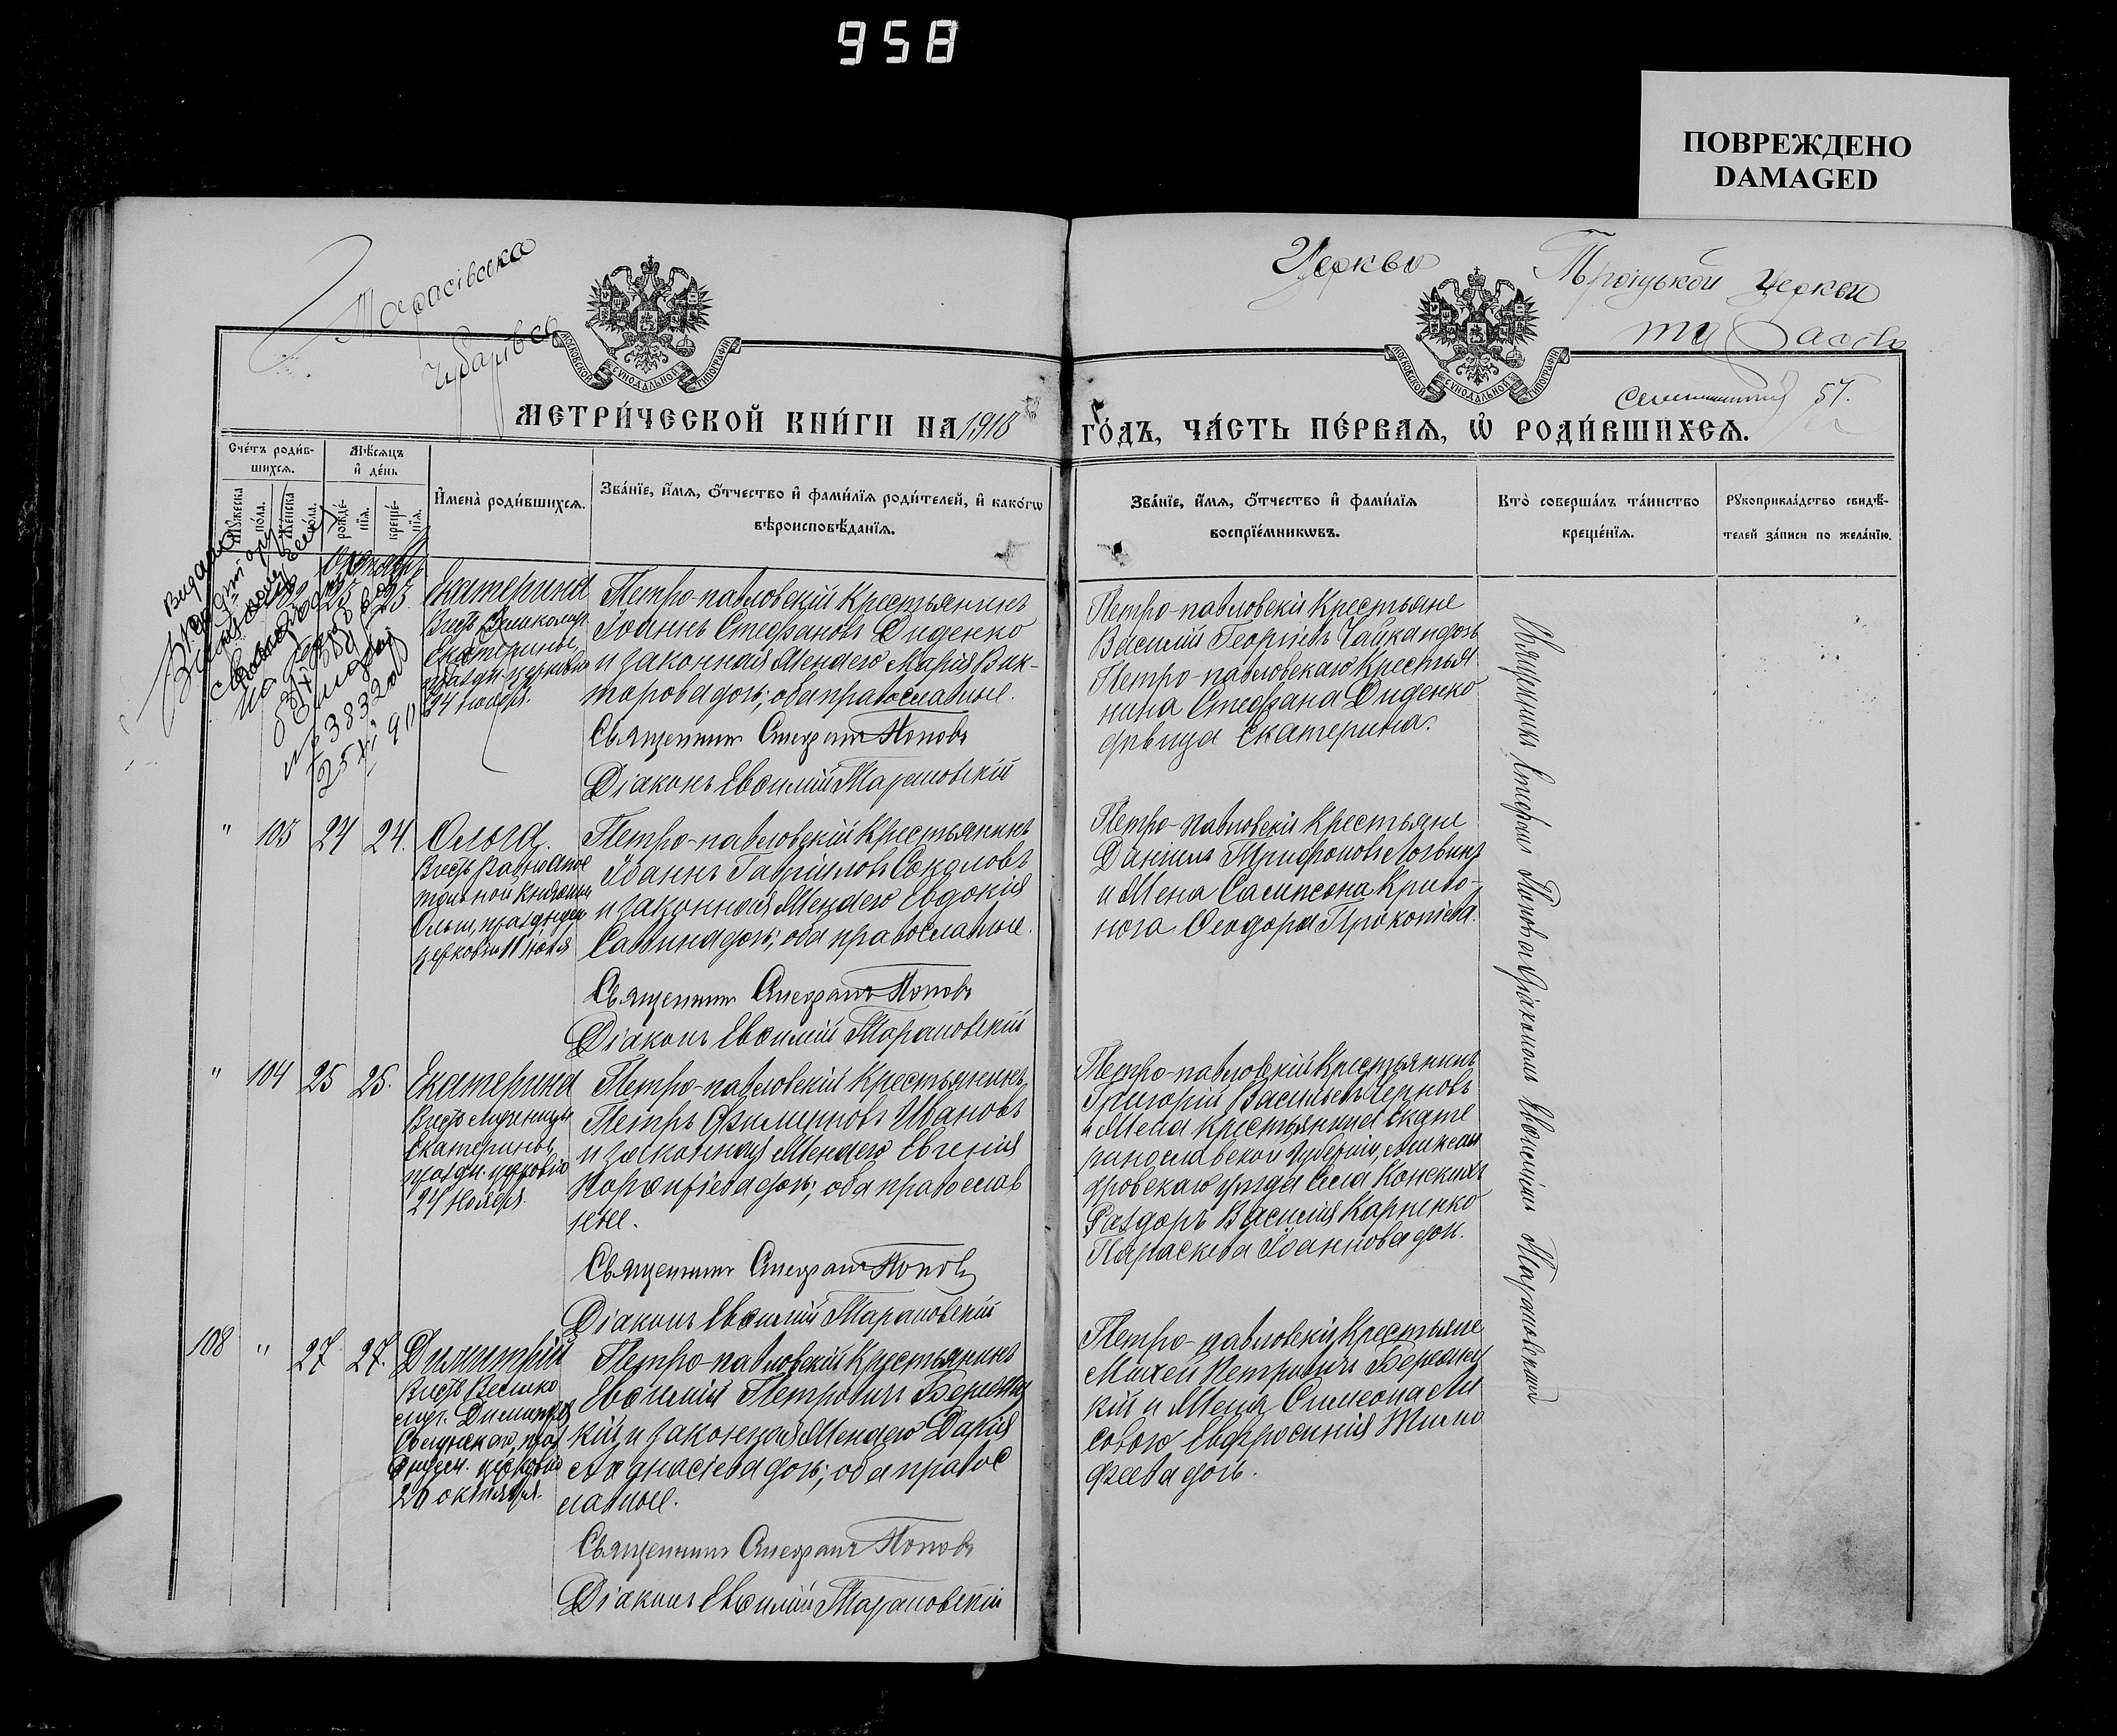 958
ПОВРЕЖДЕНО
DAMAGED
Тарасівська
Церкви Троіцької церкви
та
57.
МОСКОВСКОЙ СУНОДАЛЬНОЙ ТИПОГРАФІИ
МОСКОВСКОЙ СУНОДАЛЬНОЙ ТИПОГРАФІИ
МЕТРИ́ЧЕСКОЙ КНИ́ГИ НА 1918
ГО́ДЪ, ЧА́СТЬ ПЕ́РВАЯ, Ѡ РОДИ́ВШИХСЯ.
Сче́тъ роди́в-
шихся.
Мꙋжеска
по́ла.
Же́нска
по́ла.
Мѣ́сяцъ
и҆ де́нь
рожде́-
нїя.
креще́-
нїя.
И҆мена̀ роди́вшихся.
Зва́нїе, и҆́мя, ѻ҆́тчество и҆ фами́лїя роди́телей, и҆ како́гѡ
вѣроисповѣ́данїя.
Зва́нїе, и҆́мя, ѻ҆́тчество и҆ фами́лїя
воспрїе́мникѡвъ.
Кто̀ соверша́лъ та́инство
креще́нїя.
Рꙋкоприкла́дство свидѣ́-
телей за́писи по жела́нїю.
25 25.
Екатерина
Въ честь Великомуч.
Екатерины,
праздн. церковію
24 ноября.
Петро-павловскій крестьянинъ
Іоаннъ Стефановъ Диденко
и законная жена его Марія Вик-
торова дочь; оба православные.
Священникъ Стефанъ Поповъ
Діаконъ Евѳимій Тарановскій
Петро-павловскіе крестьяне
Василій Георгіевъ Чайка и дочь
Петро-павловскаго крестья
нина Стефана Диденко
дѣвица Екатерина.
№ 3832
" 103 24 24. Ольга.
Въ честь Равноапос
тольной Княгини
Ольги, празднуем.
церковію 11 іюля
Петро-павловскій крестьянинъ
Іоаннъ Гавріиловъ Соколовъ
и законная жена его Евдокія
Саввина дочь; оба православные.
Священникъ Стефанъ Поповъ
Діаконъ Евѳимій Тарановскій
Петро-павловскіе крестьяне
Даніилъ Трифоновъ Логвинъ
и жена Сампсона Криво-
нога Ѳеодора Прокопіева.
" 104 25 25. Екатерина
Въ честь мученицы
Екатерины,
праздн. церковію
24 ноября.
Петро-павловскій крестьянинъ
Петръ Филипповъ Ивановъ
и законная жена его Евгенія
Порфиріева дочь; оба православ
ные.
Священникъ Стефанъ Поповъ
Діаконъ Евѳимій Тарановскій
Петро-павловскій крестьянинъ
Григорій Васильевъ Черновъ
и жена крестьянина Екате
ринославской губерніи, Алексан
дровскаго уѣзда села Конскихъ
Раздоръ Василія Карпенко
Параскева Іоаннова доч.
108 " 27 27. Димитрій
Въ честь Велико
муч. Димитрія
Солунскаго, праз
днуем. церковію
26 октября.
Петро-павловскій крестьянинъ
Евѳимій Петровичъ Бережец
кій и законная жена его Дарія
Аѳанасіева дочь; оба правос
лавные.
Священникъ Стефанъ Поповъ
Діаконъ Евѳимій Тарановскій
Петро-павловскіе крестьяне
Михей Петровичъ Бережец
кій и жена Симеона Ли
совою Евфросинія Тимо
феева дочь.
Священникъ Стефанъ Поповъ съ діакономъ Евѳиміемъ Тарановскимъ